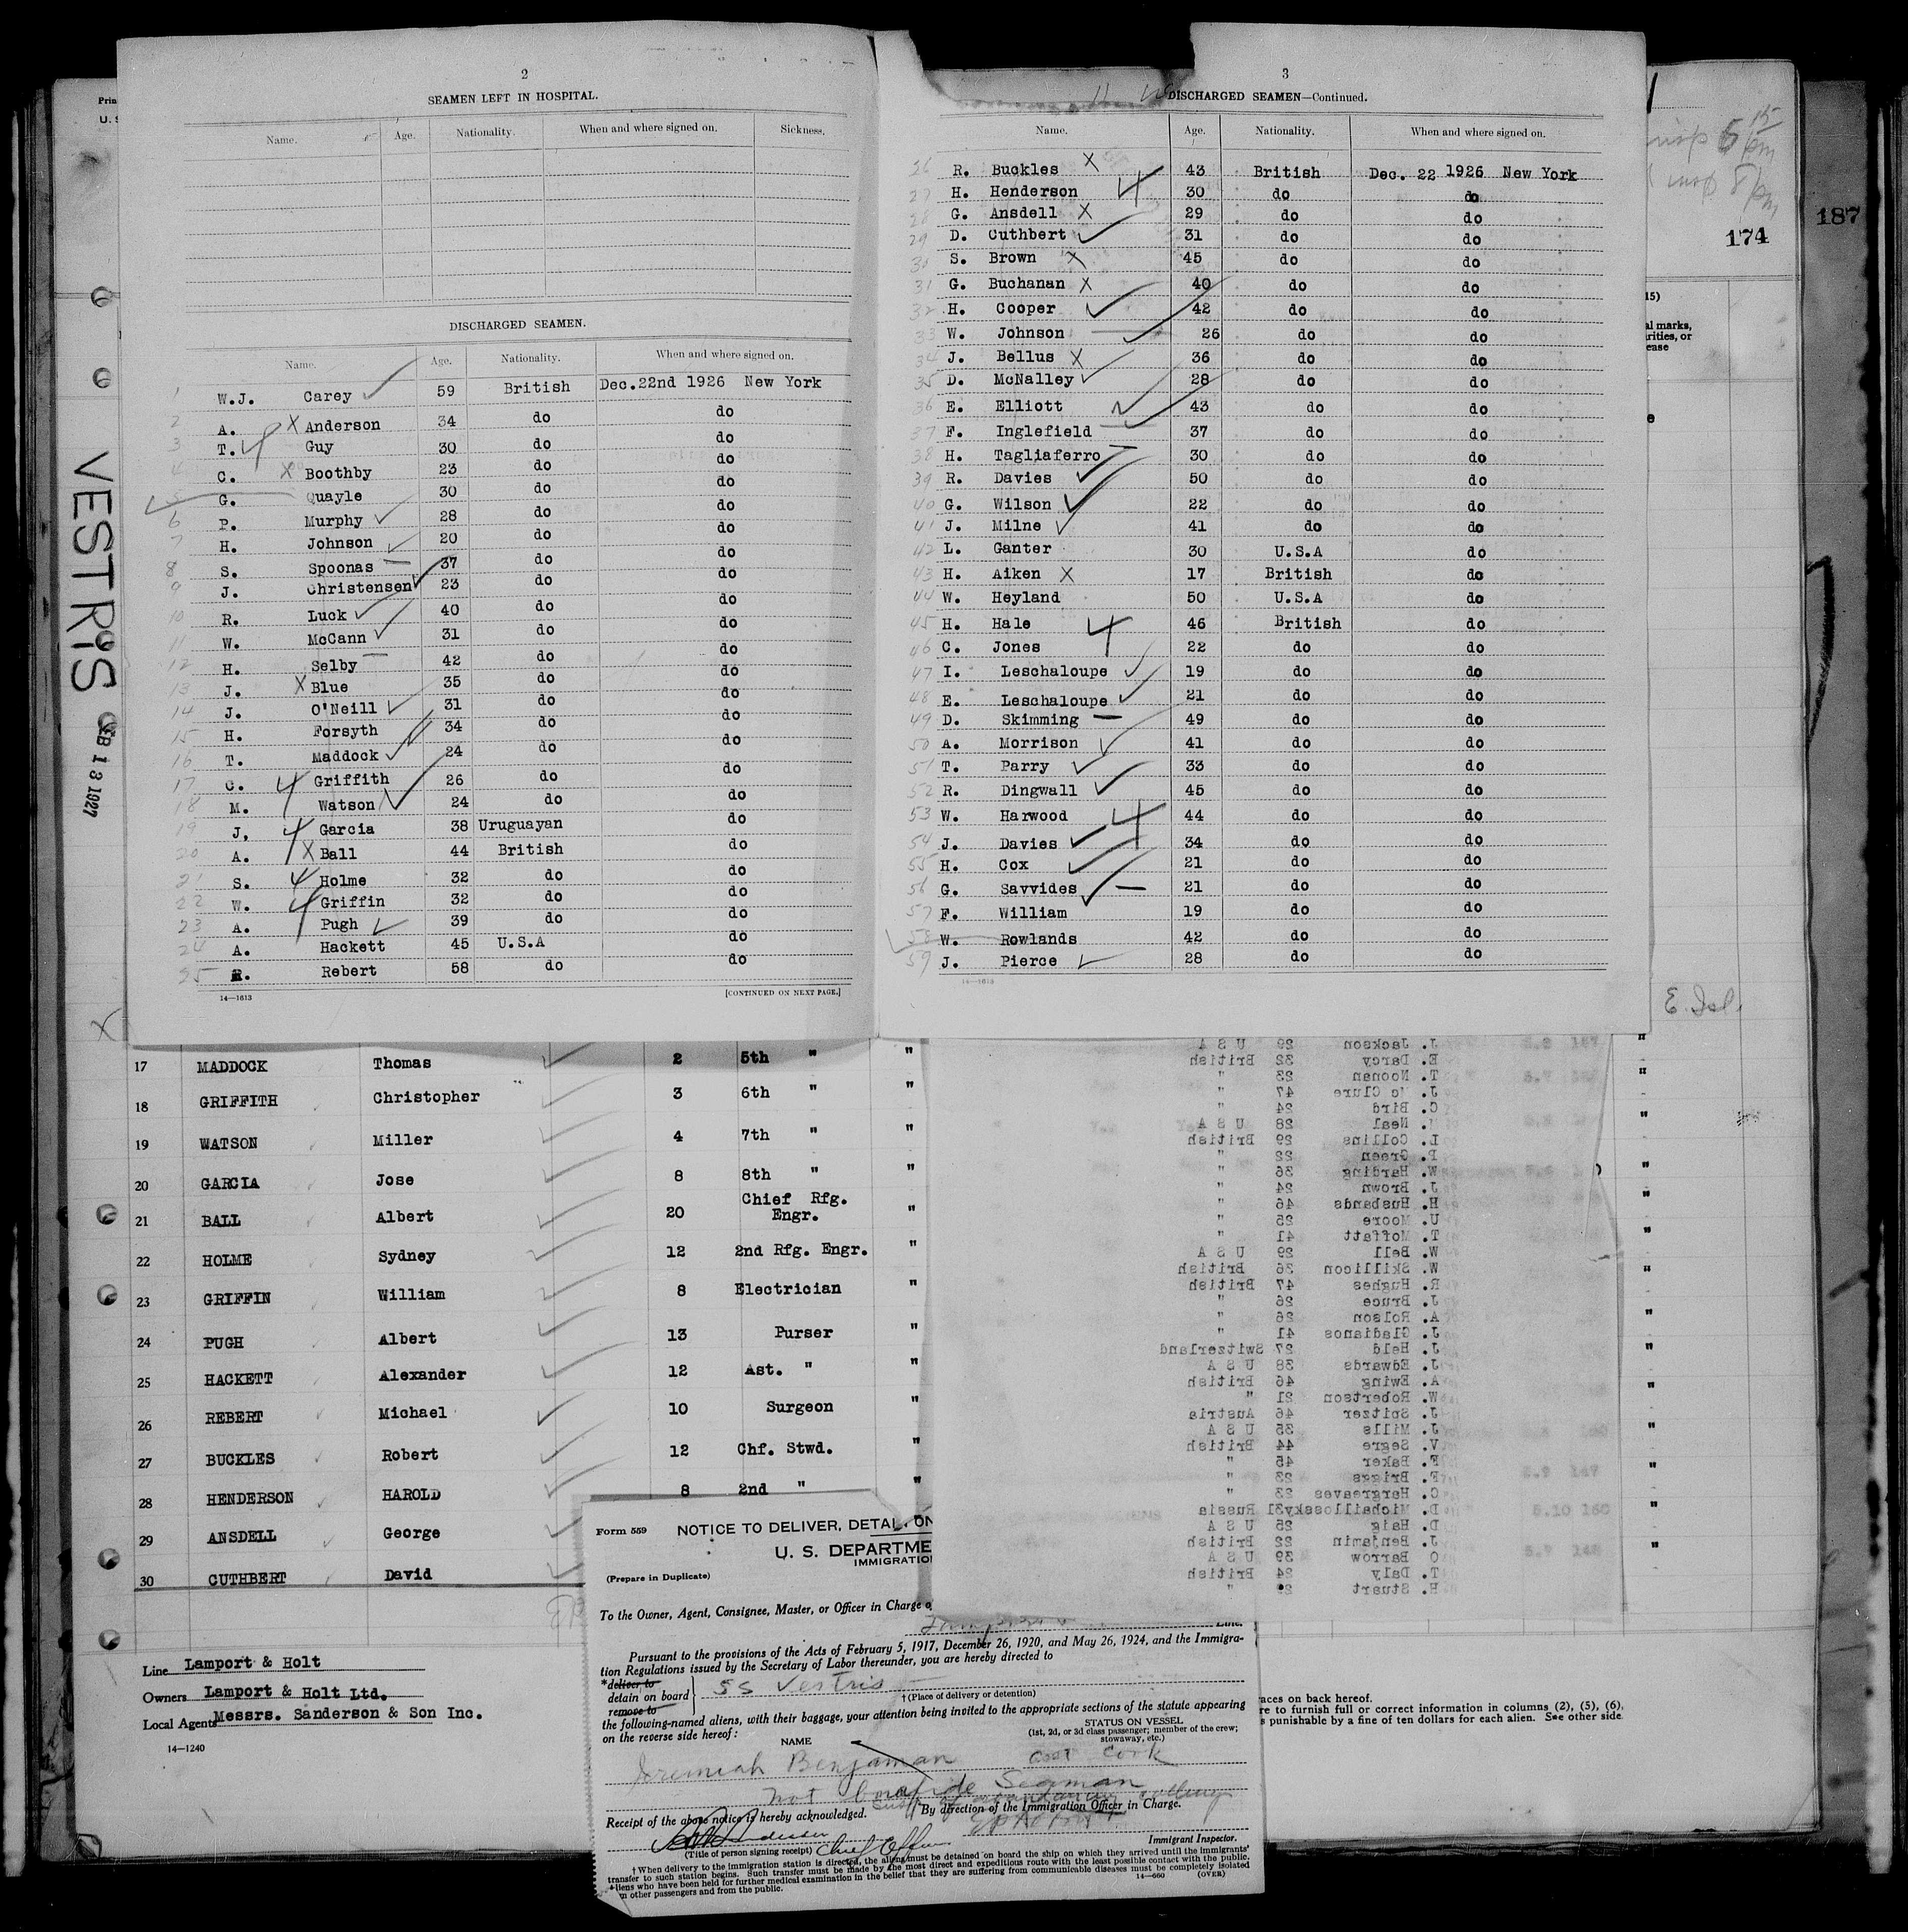 2
SEAMEN LEFT IN HOSPITAL.
Name. Age. Nationality. When and where signed on. Sickness.
DISCHARGED SEAMEN.
Name. Age. Nationality. When and where signed on.
1 W.J. Carey 59 British Dec.22nd 1926 New York
2 A. X Anderson 34 do do
3 T. Guy 30 do do
4 C. X Boothby 23 do do
5 G. Quayle 30 do do
6 P. Murphy 28 do do
7 H. Johnson 20 do do
8 S. Spoonas 37 do do
9 J. Christensen 23 do do
10 R. Luck 40 do do
11 W. McCann 31 do do
12 H. Selby 42 do do
13 J. X Blue 35 do do
14 J. O'Neill 31 do do
15 H. Forsyth 34 do do
16 T. Maddock 24 do do
17 C. 4 Griffith 26 do do
18 M. Watson 24 do do
19 J, 4 Garcia 38 Uruguayan do
20 A. X Ball 44 British do
21 S. 4 Holme 32 do do
22 W. 4 Griffin 32 do do
23 A. Pugh 39 do do
24 A. Hackett 45 U.S.A do
25 R. Rebert 58 do do
14—1613 [CONTINUED ON NEXT PAGE.]
3
DISCHARGED SEAMEN—Continued.
Name. Age. Nationality. When and where signed on.
26 R. Buckles X 43 British Dec. 22 1926 New York
27 H. Henderson 4 30 do do
28 G. Ansdell X 29 do do
29 D. Cuthbert 31 do do
30 S. Brown X 45 do do
31 G. Buchanan X 40 do do
32 H. Cooper 42 do do
33 W. Johnson 26 do do
34 J. Bellus X 36 do do
35 D. McNalley 28 do do
36 E. Elliott 43 do do
37 F. Inglefield 37 do do
38 H. Tagliaferro 30 do do
39 R. Davies 50 do do
40 G. Wilson 22 do do
41 J. Milne 41 do do
42 L. Ganter 30 U.S.A do
43 H. Aiken X 17 British do
44 W. Heyland 50 U.S.A do
45 H. Hale 4 46 British do
46 C. Jones 22 do do
47 I. Leschaloupe 19 do do
48 E. Leschaloupe 21 do do
49 D. Skimming 49 do do
50 A. Morrison 41 do do
51 T. Parry 33 do do
52 R. Dingwall 45 do do
53 W. Harwood 4 44 do do
54 J. Davies 34 do do
55 H. Cox 21 do do
56 G. Savvides 21 do do
57 F. William 19 do do
58 W. Rowlands 42 do do
59 J. Pierce 28 do do
14—1613
VESTRIS
13 1927
187
174
E. Isl.
17 MADDOCK Thomas 2 5th " "
18 GRIFFITH Christopher 3 6th " "
19 WATSON Miller 4 7th " "
20 GARCIA Jose 8 8th " "
21 BALL Albert 20 Chief Rfg. Engr. "
22 HOLME Sydney 12 2nd Rfg. Engr. "
23 GRIFFIN William 8 Electrician "
24 PUGH Albert 13 Purser "
25 HACKETT Alexander 12 Ast. " "
26 REBERT Michael 10 Surgeon "
27 BUCKLES Robert 12 Chf. Stwd. "
28 HENDERSON HAROLD 8 2nd " "
29 ANSDELL George
30 CUTHBERT David
Line Lamport & Holt
Owners Lamport & Holt Ltd.
Local Agents Messrs. Sanderson & Son Inc.
14—1240
J. Jackson 29 U S A
E. Darcy 32 British
T. Noonan 23 "
J. Mc Clure 47 "
C. Bird 24 "
Neal 28 U S A
L. Collins 29 British
P. Green 22 "
W. Harding 36 "
J. Brown 24 "
H. Husbands 46 "
U. Moore 25 "
T. Moffatt 41 "
W. Bell 29 U S A
W. Skillicon 36 British
R. Hughes 47 British
J. Bruce 26 "
A. Rolson 26 "
J. Gladianos 41 "
J. Held 27 Switzerland
J. Edwards 38 U S A
A. Ewing 46 British
W. Robertson 21 "
J. Spitzer 46 Austria
J. Mills 35 U S A
V. Segre 44 British
E. Baker 45 "
E. Briggs 23 "
C. Hargreaves 23 "
D. Michaillossky 31 Russia
D. Haig 25 U S A
J. Benjamin 22 British
O Barrow 39 U S A
T. Daly 24 British
H. Stuart "
Form 559 NOTICE TO DELIVER, DETAI ON
U. S. DEPARTME
IMMIGRATIO
(Prepare in Duplicate)
To the Owner, Agent, Consignee, Master, or Officer in Charge o
Line.
Pursuant to the provisions of the Acts of February 5, 1917, December 26, 1920, and May 26, 1924, and the Immigra-
tion Regulations issued by the Secretary of Labor thereunder, you are hereby directed to
*deliver to
detain on board SS Vestris
remove to
†(Place of delivery or detention)
the following-named aliens, with their baggage, your attention being invited to the appropriate sections of the statute appearing
on the reverse side hereof:
NAME
STATUS ON VESSEL
(1st, 2d, or 3d class passenger; member of the crew;
stowaway, etc.)
Jeremiah Benjaman Cook
not bonafide Seaman
Receipt of the above notice is hereby acknowledged. By direction of the Immigration Officer in Charge.
Chief Officer
(Title of person signing receipt) Immigrant Inspector.
† When delivery to the immigration station is directed, the aliens must be detained on board the ship on which they arrived until the immigrants'
transfer to such station begins. Such transfer must be made by the most direct and expeditious route with the least possible contact with the public.
Aliens who have been held for further medical examination in the belief that they are suffering from communicable diseases must be completely isolated
m other passengers and from the public.
14—660 (OVER)
aces on back hereof.
re to furnish full or correct information in columns (2), (5), (6),
s punishable by a fine of ten dollars for each alien. See other side